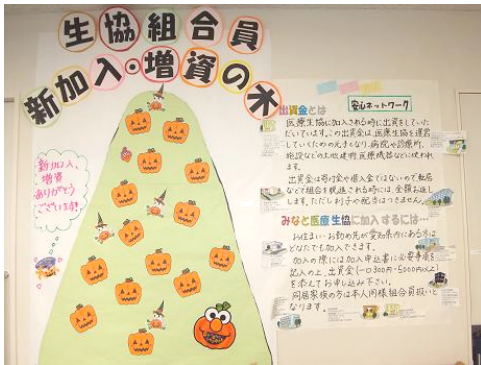 生協組合員
新加入・増資の木
新加入、
増資
ありがとう
ございます!
安心ネットワーク
出資金とは
医療生協に加入される時に出資をしていた
だいています。この出資金は、医療生協を運営
していくための元手となり、病院や診療所、
施設などの土地建物、医療機器などに使われ
ます。
出資金は寄付金や掛入金ではないので転居
などで組合を脱退される時には、全額お返し
します。ただしお利子や配当はつきません。
みなと医療生協に加入するには…
お住まい・お勤め先が愛知県内にある方は
どなたでも加入できます。
加入の際には加入申込書に必要事項を
記入の上、出資金(一口300円・5000円以上)
を添えてお申し込み下さい。
同居家族の方は本人同様組合員扱いと
なります。